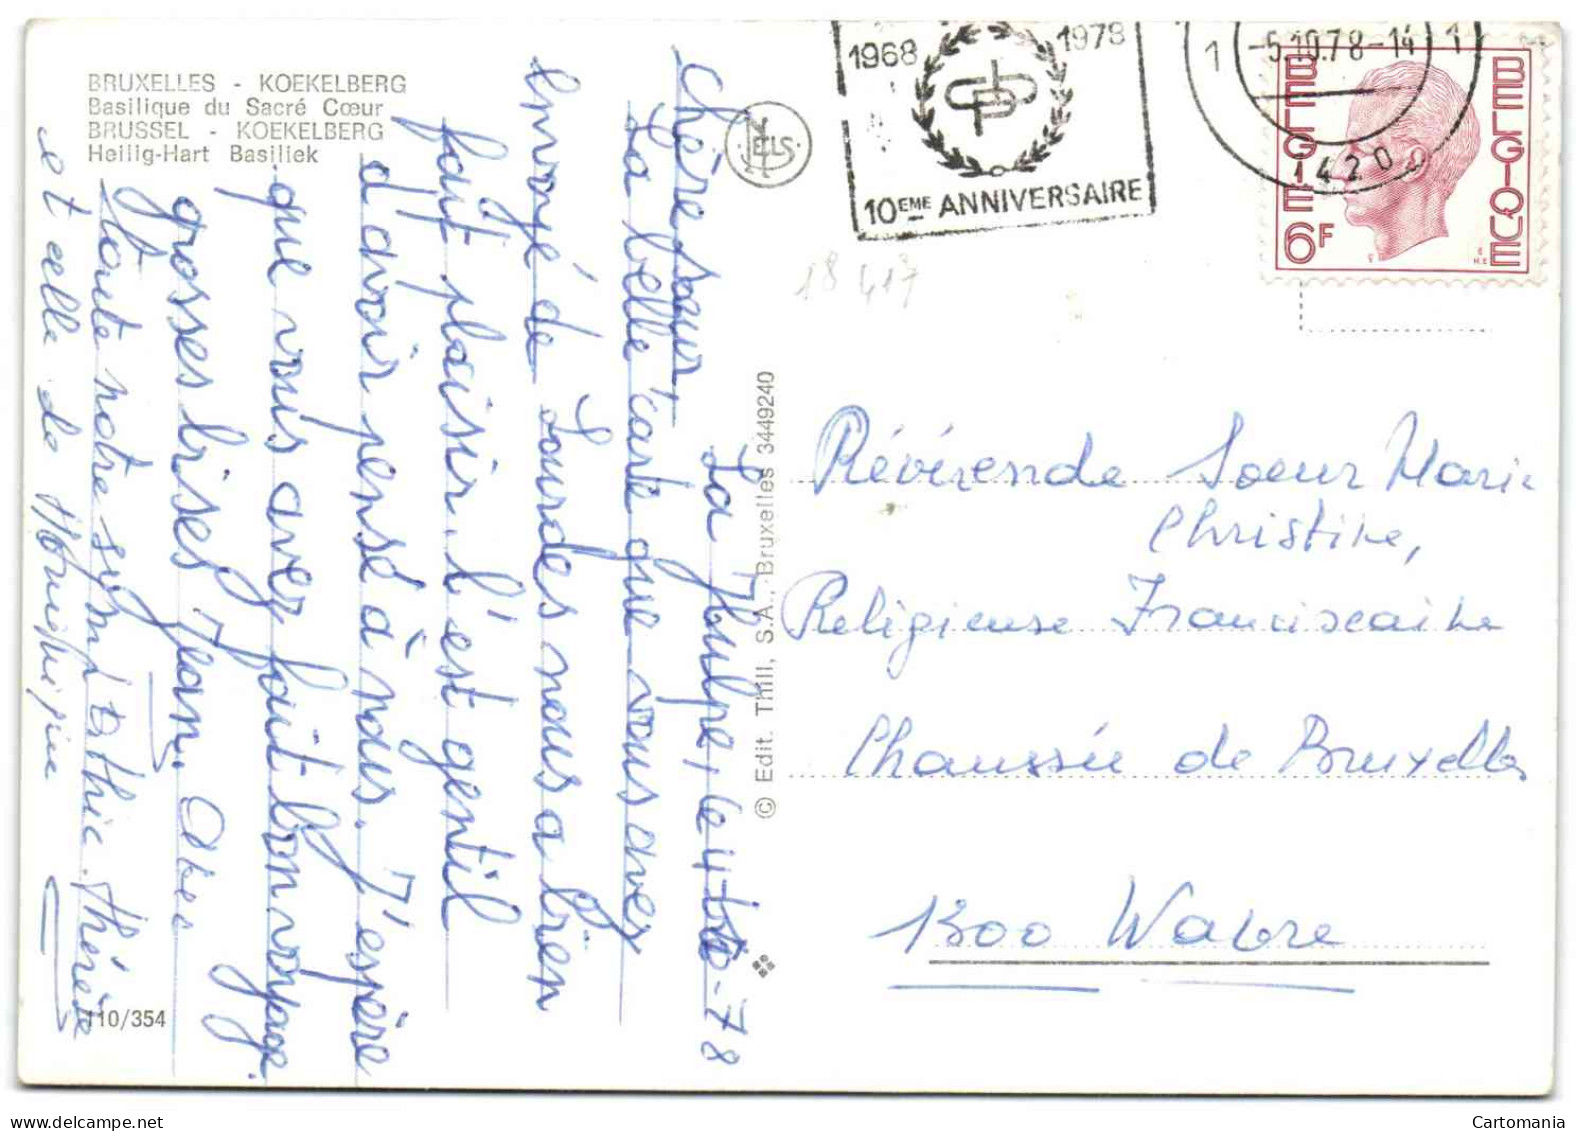 BRUXELLES - KOEKELBERG
Basilique du Sacré Cœur
BRUSSEL - KOEKELBERG
Heilig-Hart Basiliek
NELS
1968
1978
10EME ANNIVERSAIRE
1 -5.10.78-14 1
1420
BELGIE
BELGIQUE
6F
18 417
La Hulpe, le 4-10-78
Chère sœur
La belle carte que vous avez
envoyé de Lourdes nous a bien
fait plaisir. C'est gentil
d'avoir pensé à nous. J'espère
que vous avez fait bon voyage.
grosses bises Jean. Avec
toute notre symphathie. Thérèse
et celle de Monique
© Edit. Thill, S.A., Bruxelles 3449240
Révérende Soeur Marie
Christine,
Religieuse Franciscaine
Chaussée de Bruxelles
1300 Wabre
110/354
Cartomania